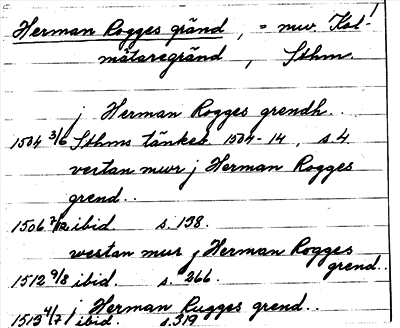 Herman Rogges gränd, = nuv. Kal-
mätaregränd, Sthm.
j Herman Rogges grendh..
1504 3/6 Sthms tänkeb. 1504-14, s.4.
vestan mwr j Herman Rogges
grend..
1506 7/12 ibid. s.198.
westan mur j Herman Rogges
grend..
1512 9/8 ibid. s.266.
j Herman Rugges grend..
1513 4/7 ibid. s.319